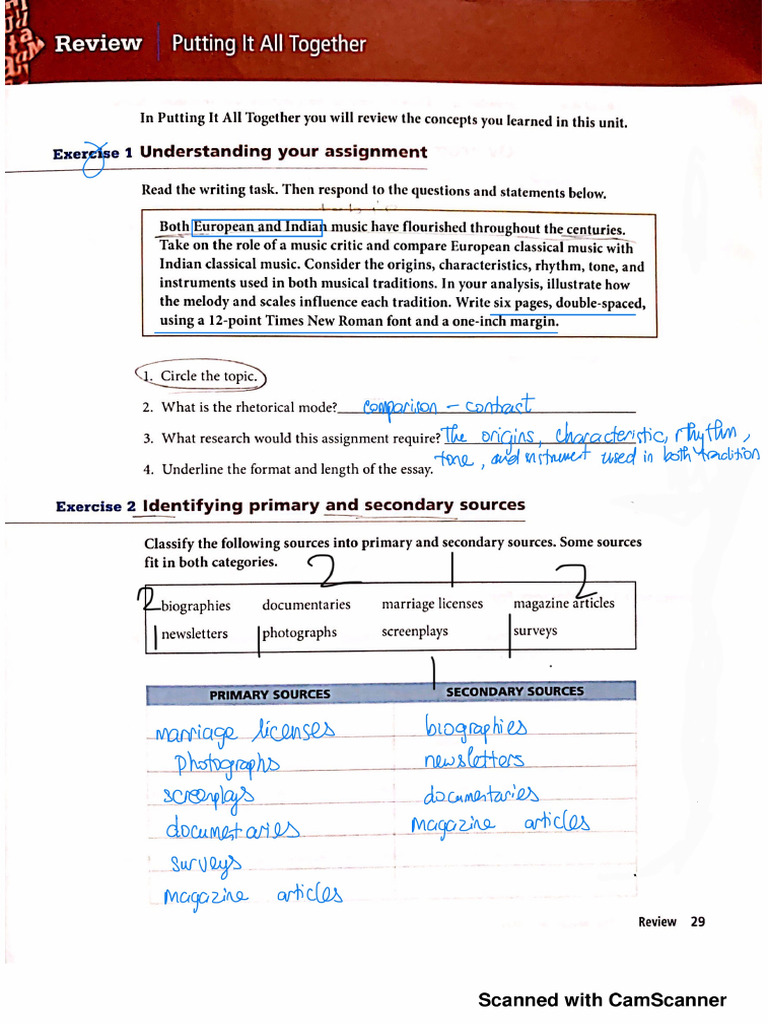 Review | Putting It All Together
In Putting It All Together you will review the concepts you learned in this unit.
Exercise 1 Understanding your assignment
Read the writing task. Then respond to the questions and statements below.
Both European and Indian music have flourished throughout the centuries.
Take on the role of a music critic and compare European classical music with
Indian classical music. Consider the origins, characteristics, rhythm, tone, and
instruments used in both musical traditions. In your analysis, illustrate how
the melody and scales influence each tradition. Write six pages, double-spaced,
using a 12-point Times New Roman font and a one-inch margin.
1. Circle the topic.
2. What is the rhetorical mode? comparison - contract
3. What research would this assignment require? The origins, characteristic, rhythm,
tone, and instrument used in both tradition
4. Underline the format and length of the essay.
Exercise 2 Identifying primary and secondary sources
Classify the following sources into primary and secondary sources. Some sources
fit in both categories.
2 1 2
2 biographies documentaries marriage licenses magazine articles
1 newsletters 1 photographs screenplays 1 surveys
1
PRIMARY SOURCES SECONDARY SOURCES
marriage licenses biographies
photographs newsletters
screenplays documentaries
documentaries magazine articles
surveys
magazine articles
Review 29
Scanned with CamScanner